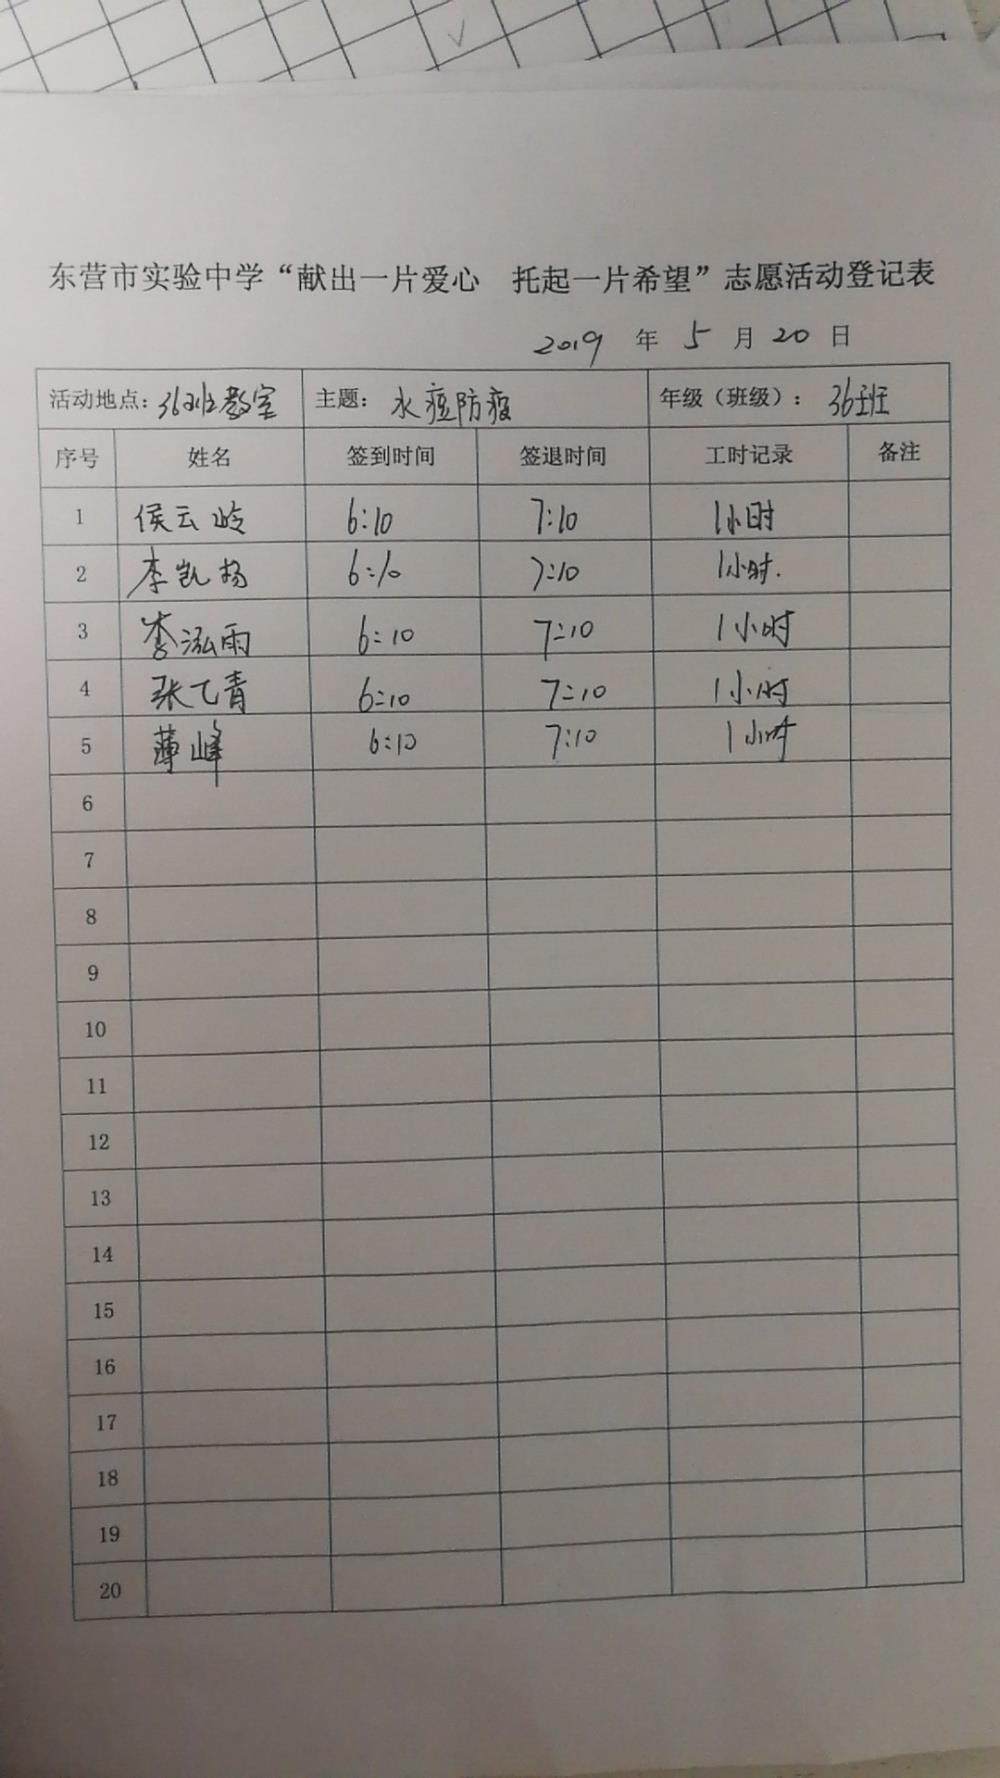 东营市实验中学“献出一片爱心 托起一片希望”志愿活动登记表
2019 年 5 月 20 日
活动地点：36班教室 主题：水痘防疫 年级（班级）：36班
序号 姓名 签到时间 签退时间 工时记录 备注
1 侯云岭 6:10 7:10 1小时
2 李凯扬 6:10 7:10 1小时.
3 李泓雨 6:10 7:10 1小时
4 张乙青 6:10 7:10 1小时
5 薄峰 6:10 7:10 1小时
6
7
8
9
10
11
12
13
14
15
16
17
18
19
20